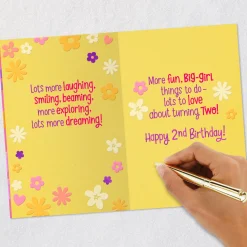 Lots more laughing,
smiling, beaming,
more exploring,
lots more dreaming!
More fun, BIG-girl
things to do –
lots to love
about turning TWO!
Happy 2nd Birthday!